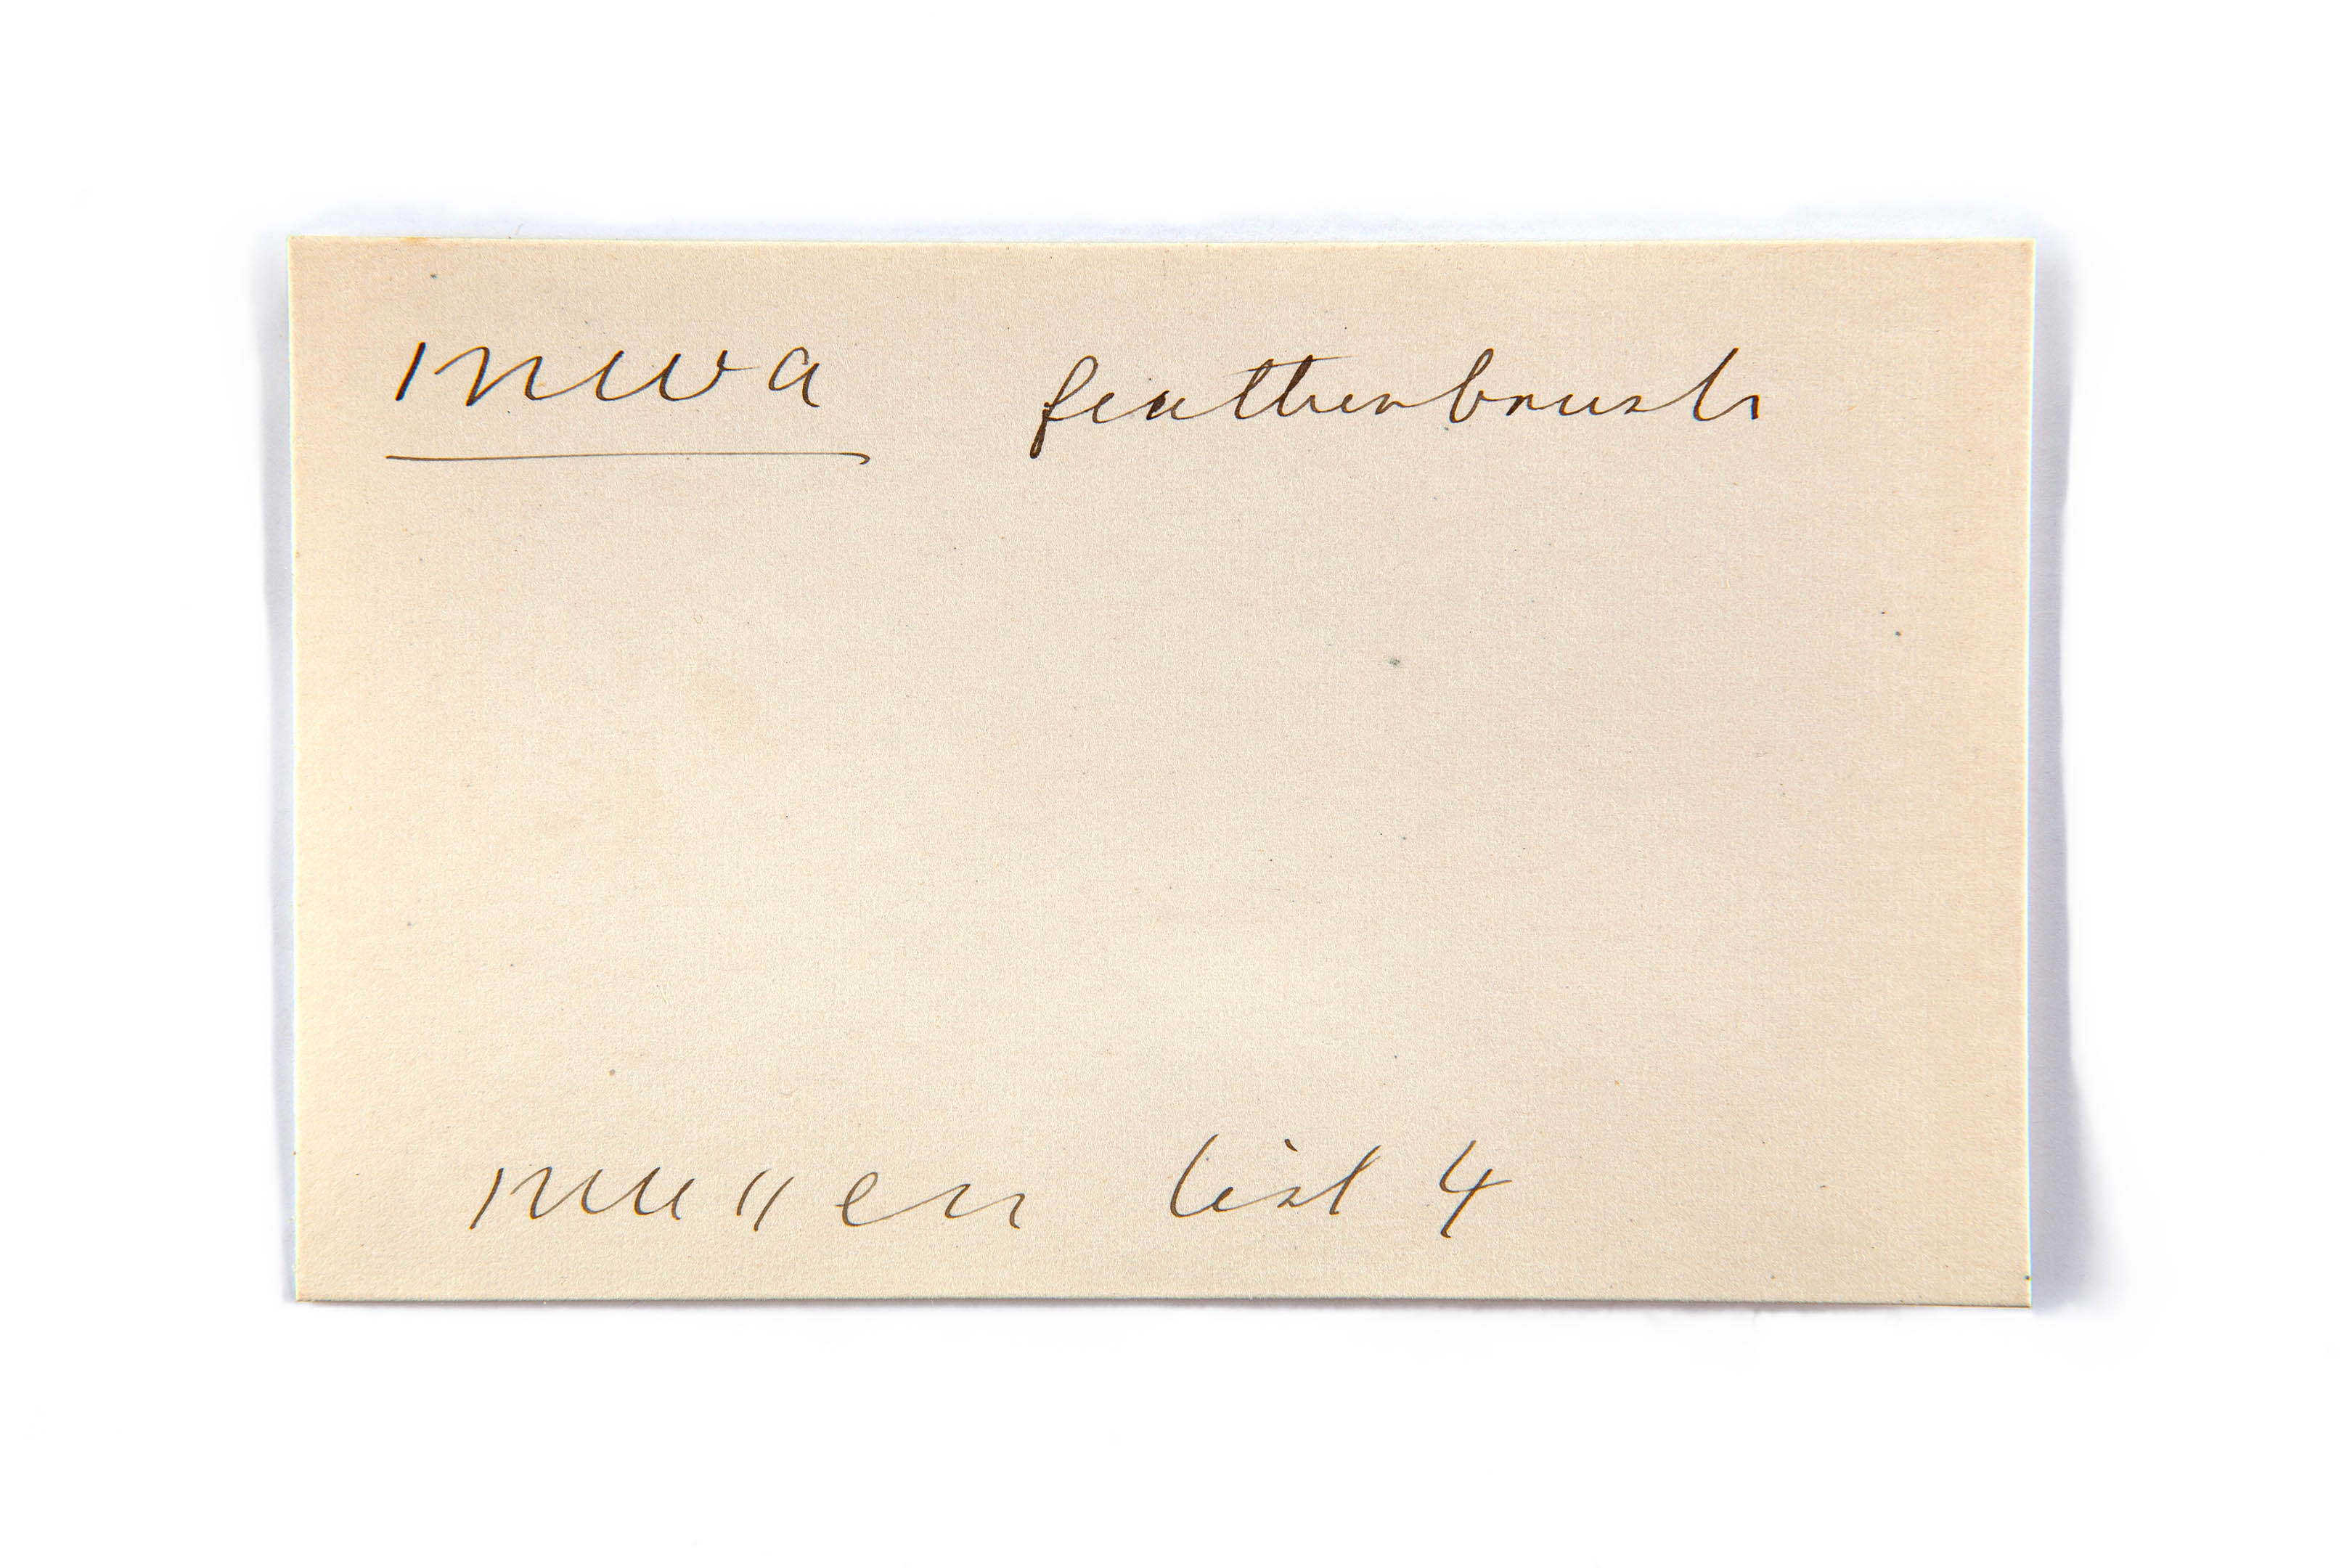 mwa featherbrush
mullen list 4